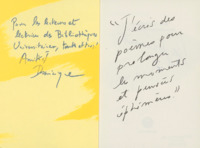 Pour les lecteurs et
lectrices de Bibliothèques
Universitaires,
Dominique
"J'écris des
poèmes pour
prolonger
les moments
et pensées
éphémères"